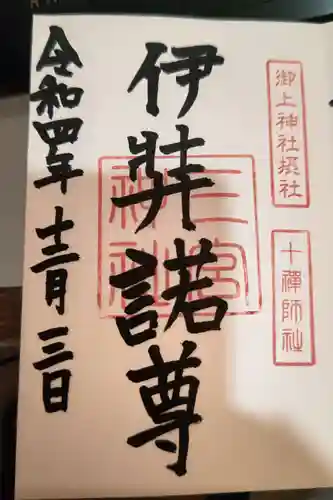 御上神社摂社
十禪師社
伊弉諾尊
三宮
神社
令和四年十二月三日